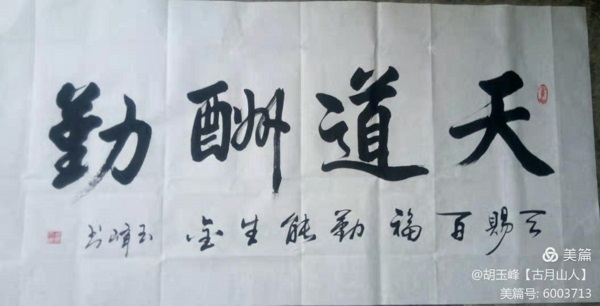 天道酬勤
天赐百福 勤能生金 玉峰书
美篇
@胡玉峰【古月山人】
美篇号: 6003713